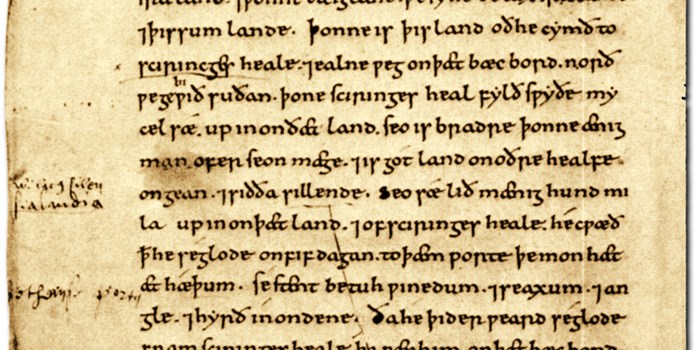 7 þissum lande. Þonne is þis land oðhe cymð to
scirincges heale. 7 ealne weg on þæt bæc bord. norð
wege wið suðan. þone sciringes heal fylð swyðe my
cel sæ. up in on ðæt land. seo is bradre þonne ænig
man ofer seon mæge. 7 is got land on oðre healfe
ongean. 7 sidda sillende. Seo sæ lið mænig hund mi
la up in on þæt land. 7 of sciringes heale. he cwæð
ꝥ he seglode on fif dagan. to þæm porte þe mon hæt
æt hæþum. se stent betuh winedum. 7 seaxum. 7 an
gle. 7 hyrð in on dene. Ða he þider weard seglode
fram sciringes heale